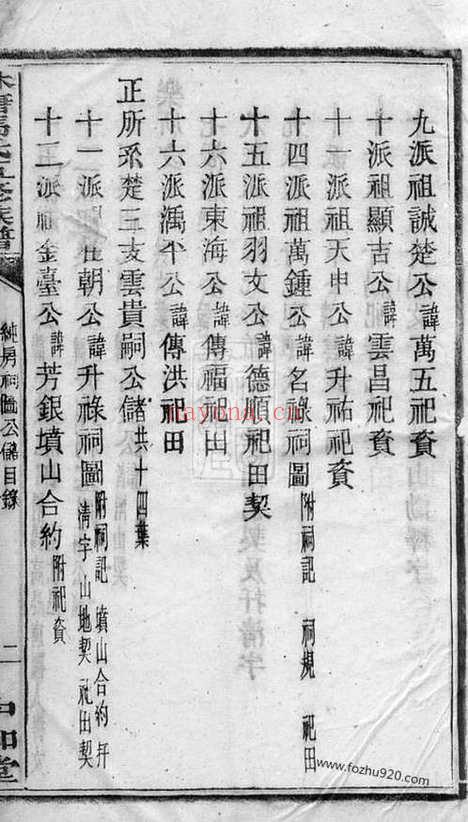 九派祖誠楚公諱萬五祀資
十派祖顯古公諱雲昌祀資
十一派祖天申公諱升祐祀資
十四派祖萬鍾公諱名祿祠圖附祠記 祠規 祀田
十五派祖羽文公諱德順祀田契
十六派東海公諱傳福祀田
十六派漢平公諱傳洪祀田
正所系楚三支雲貴嗣公儲共十四葉
十一派祖在朝公諱升祿祠圖附祠記 墳山合約 扦清字 山地契 祀田契
十二派祖金臺公諱芳銀墳山合約附祀資
純房祠圖公儲目錄
二
中和堂
mayona.cn
www.fozhu920.com